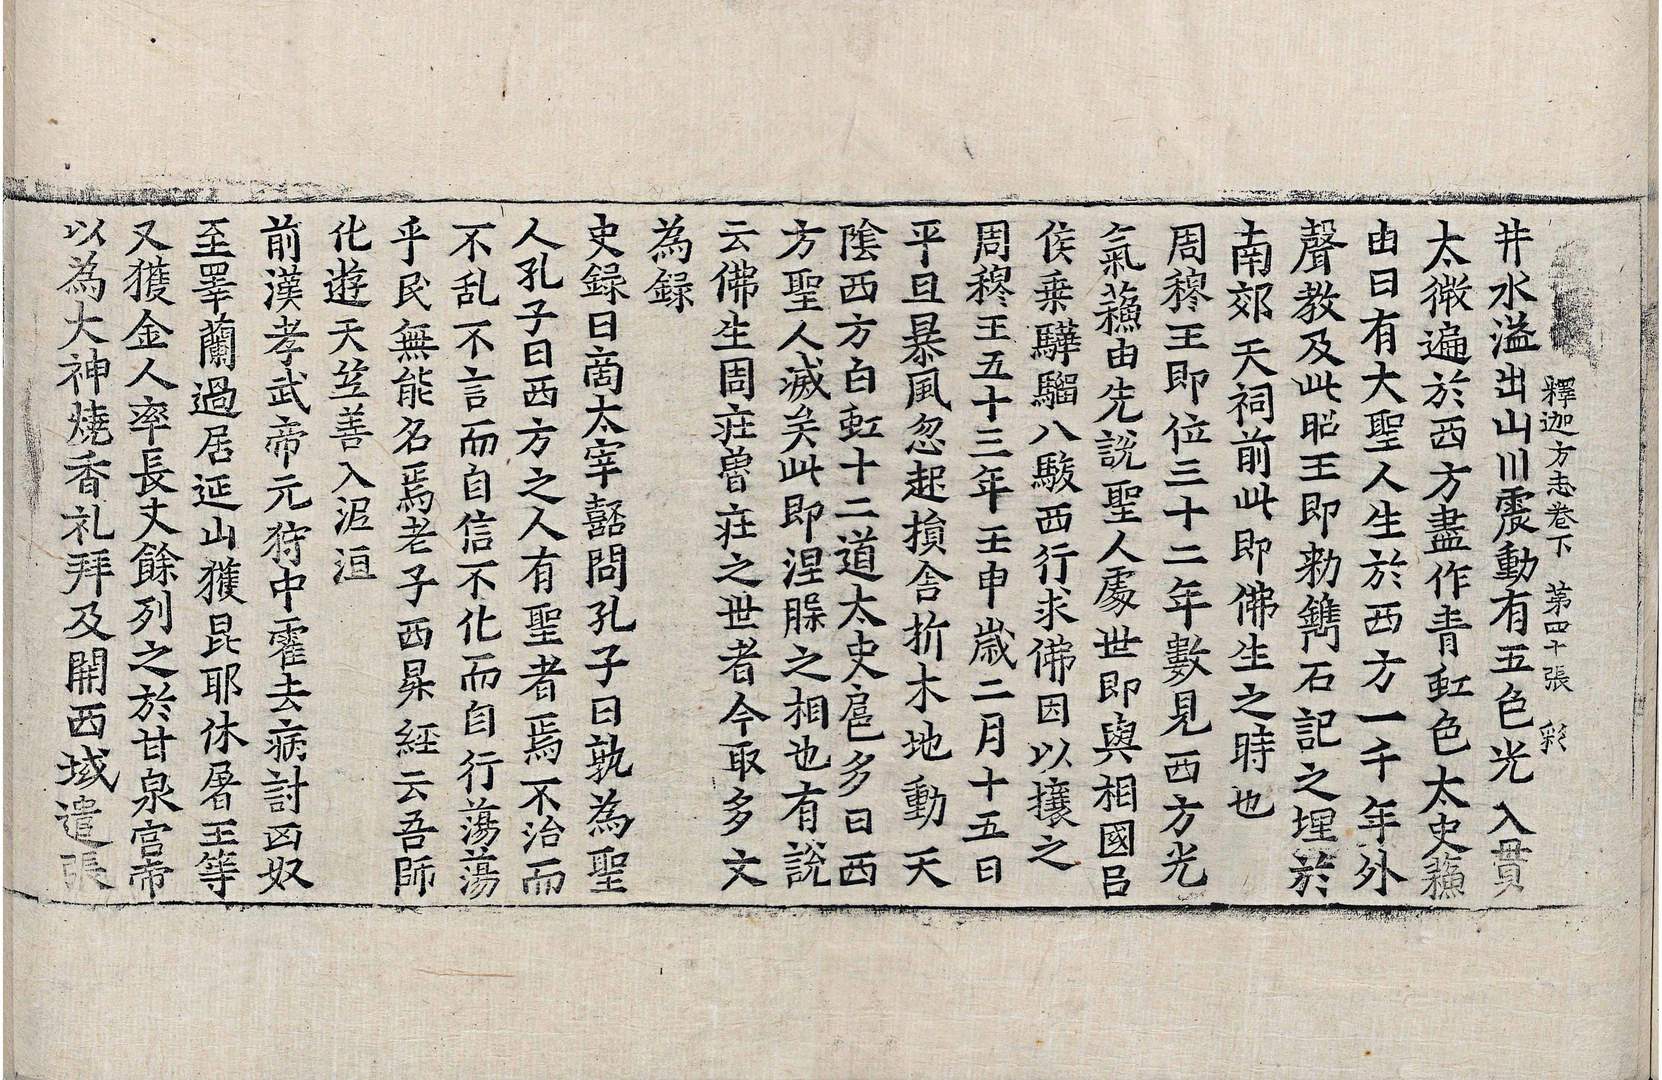 釋迦方志卷下 第四十張 彩
井水溢出山川震動有五色光入貫
太微遍於西方盡作青虹色太史蘓
由曰有大聖人生於西方一千年外
聲教及此昭王即勑鐫石記之埋於
南郊天祠前此即佛生之時也
周穆王即位三十二年數見西方光
氣蘓由先說聖人處世即與相國吕
侯乗驊騮八駿西行求佛因以攘之
周穆王五十三年壬申歲二月十五日
平旦暴風忽起損舎折木地動天
陰西方白虹十二道太史扈多曰西
方聖人滅矣此即涅槃之相也有說
云佛生周莊魯莊之世者今取多文
為録
史録曰啇太宰嚭問孔子曰孰為聖
人孔子曰西方之人有聖者焉不治而
不乱不言而自信不化而自行蕩蕩
乎民無能名焉老子西昇經云吾師
化遊天竺善入泥洹
前漢孝武帝元狩中霍去病討凶奴
至睪蘭過居延山獲昆耶休屠王等
又獲金人率長丈餘列之於甘泉宫帝
以為大神燒香礼拜及開西域遣張